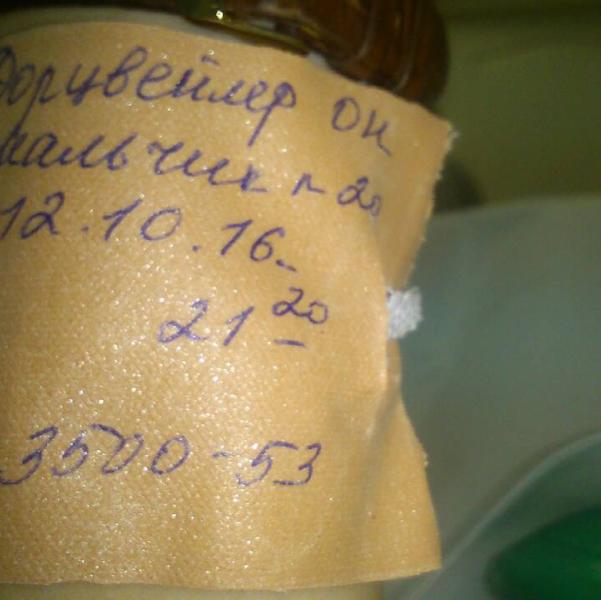 Дорцвейлер ОН
мальчик п 20
12.10.16
21 20
3500-53